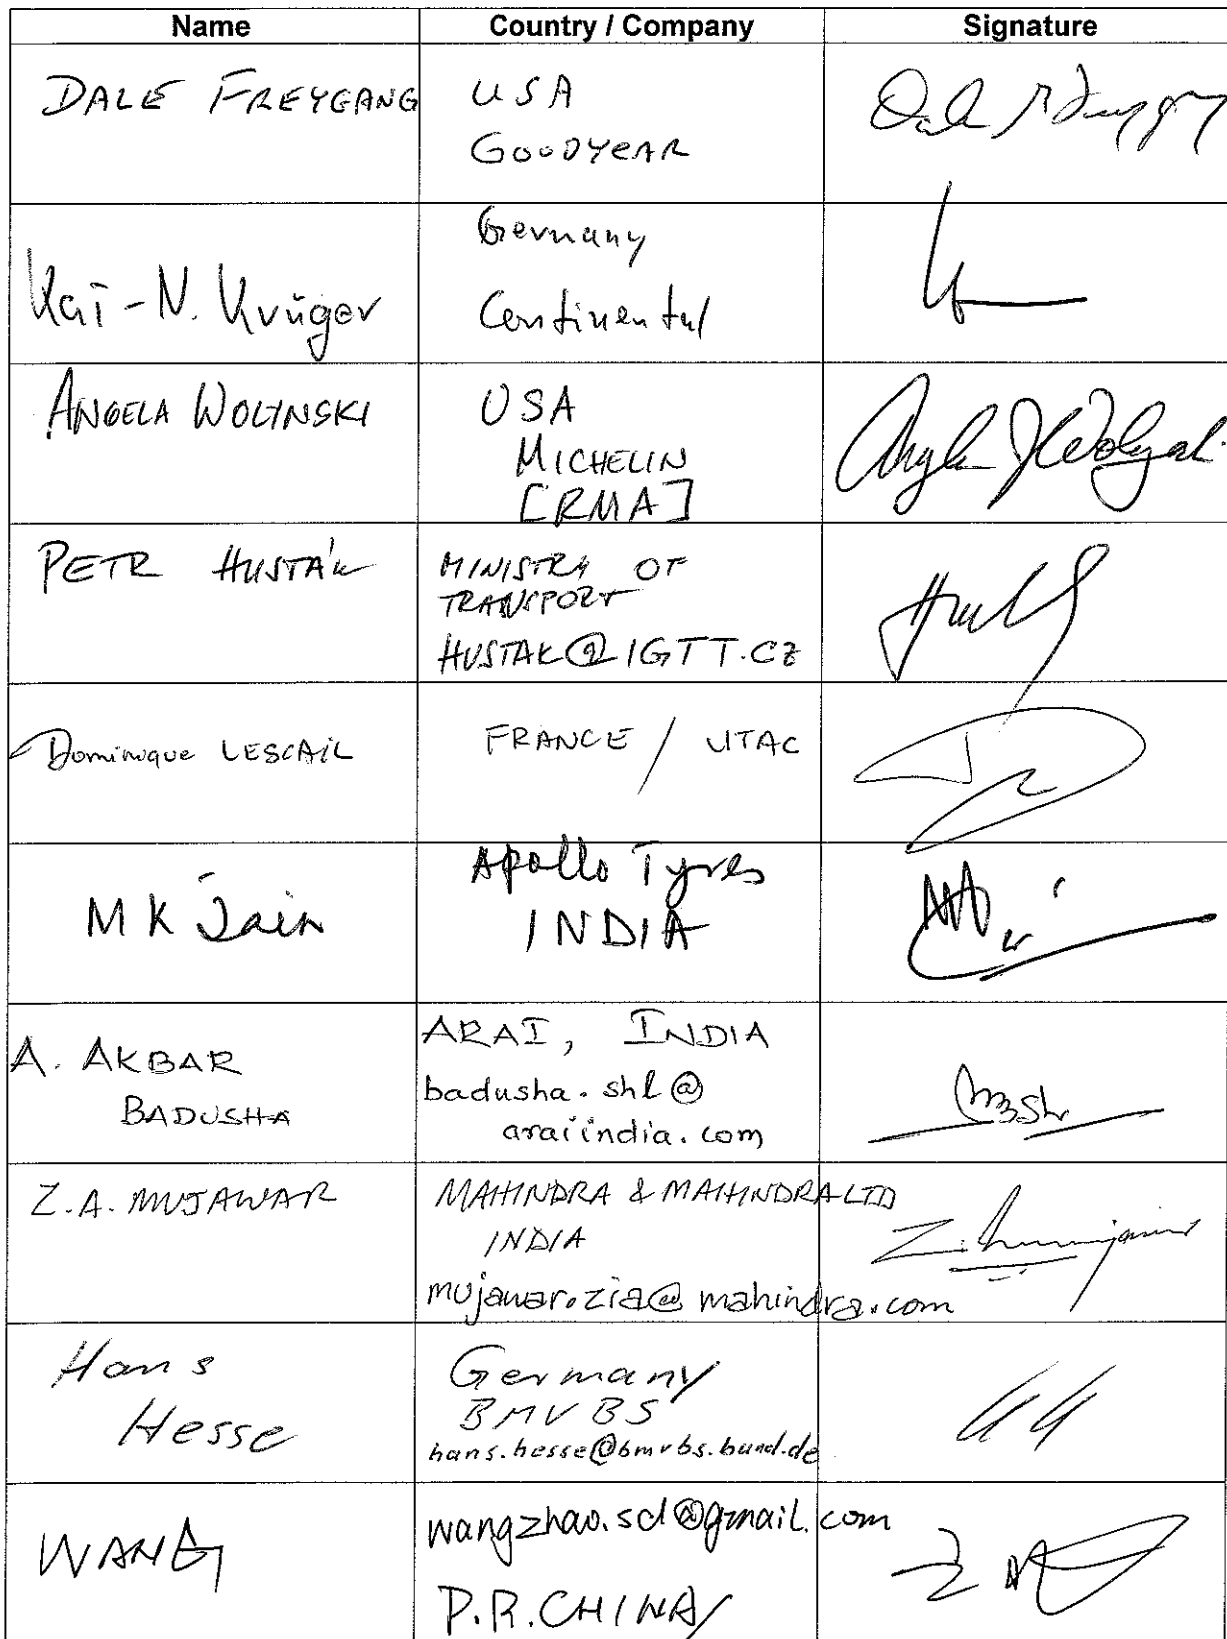 Name Country / Company Signature
DALE FREYGANG
USA
GOODYEAR
Kai-N. Krüger
Germany
Continental
ANGELA WOLYNSKI
USA
MICHELIN
[RMA]
PETR HUSTÁK
MINISTRY OF
TRANSPORT
HUSTAK@IGTT.CZ
Dominique LESCAIL
FRANCE / UTAC
M K Jain
Apollo Tyres
INDIA
A. AKBAR
BADUSHA
ARAI, INDIA
badusha.shl@
araiindia.com
Z.A. MUJAWAR
MAHINDRA & MAHINDRA LTD
INDIA
mujawar.zia@mahindra.com
Hans
Hesse
Germany
BMVBS
hans.hesse@bmvbs.bund.de
WANG
wangzhao.sd@gmail.com
P.R.CHINA